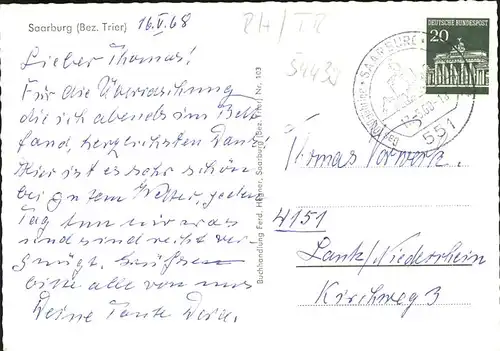 Saarburg (Bez. Trier)
16.V.68
RH/TR
54439
Lieber Thomas!
Für die Überraschung
die ich abends im Bett
fand, herzlichsten Dank!
Hier ist es sehr schön
bei gutem Wetter, jeden
Tag tun wir was
und sind recht ver-
gnügt. Grüße
bitte alle von uns
Deine Tante Dora.
Buchhandlung Ferd. Hegner, Saarburg (Bez. Trier) Nr. 103
DEUTSCHE BUNDESPOST
20
SAARBURG
551
Thomas Vorwerk
4151
Lank/Niederrhein
Kirchweg 3